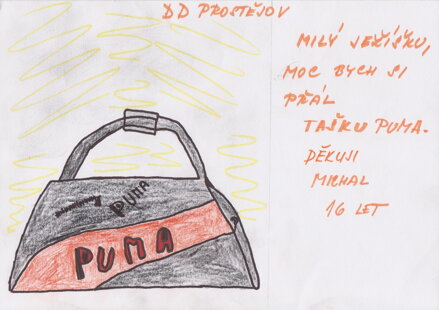 DD PROSTĚJOV
MILÝ JEŽÍŠKU,
MOC BYCH SI
PŘÁL
TAŠKU PUMA.
DĚKUJI
MICHAL
16 LET
PUMA
PUMA